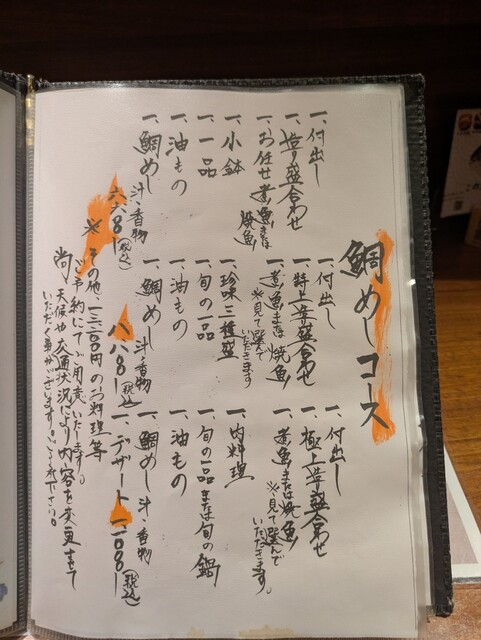 鯛めしコース
一、付出し
一、造り盛合わせ
一、お任せ煮魚または焼魚
一、小鉢
一、一品
一、油もの
一、鯛めし 汁・香物
六、六〇〇ー(税込)
一、付出し
一、特上造り盛合わせ
一、煮魚または焼魚
※見て選んでいただきます
一、珍味三種盛
一、旬の一品
一、油もの
一、鯛めし 汁・香物
八、八〇〇ー(税込)
一、付出し
一、極上造り盛合わせ
一、煮魚または焼魚
※見て選んでいただきます。
一、肉料理
一、旬の一品または旬の鍋
一、油もの
一、鯛めし 汁・香物
一、デザート
(税込)
※その他、一三二〇〇円のお料理等
ご予約にてご用意いたします。
尚、天候や交通状況により内容を変更させて
いただく事がございます。ご了承下さい。